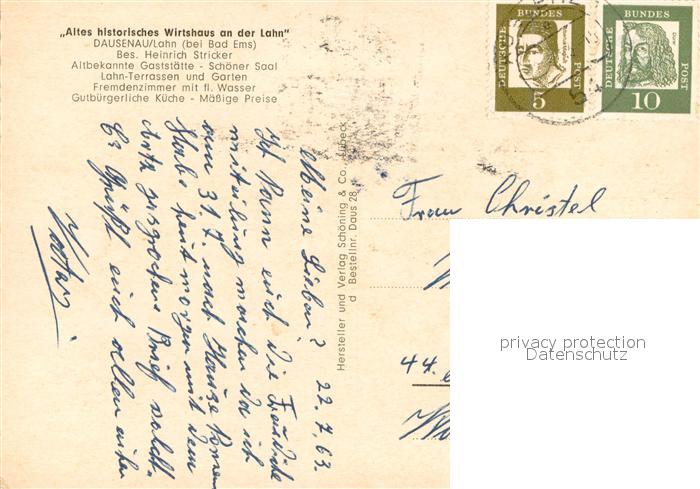 „Altes historisches Wirtshaus an der Lahn"
DAUSENAU/Lahn (bei Bad Ems)
Bes. Heinrich Stricker
Altbekannte Gaststätte - Schöner Saal
Lahn-Terrassen und Garten
Fremdenzimmer mit fl. Wasser
Gutbürgerliche Küche - Mäßige Preise
DEUTSCHE BUNDES POST
5
DEUTSCHE BUNDES POST
10
Hersteller und Verlag Schöning & Co., Lübeck
Bestellnr. Daus 28
Meine Lieben! 22.7.63.
Ich kann euch die
mitteilung machen da ich
am 31.7. nach Hause
Habe heut morgen mit dem
Arzt
Es grüßt euch allen
Frau Christel
44
privacy protection
Datenschutz